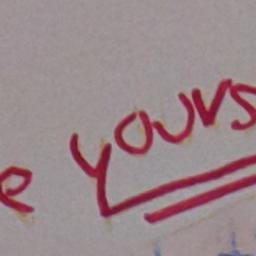 e yours